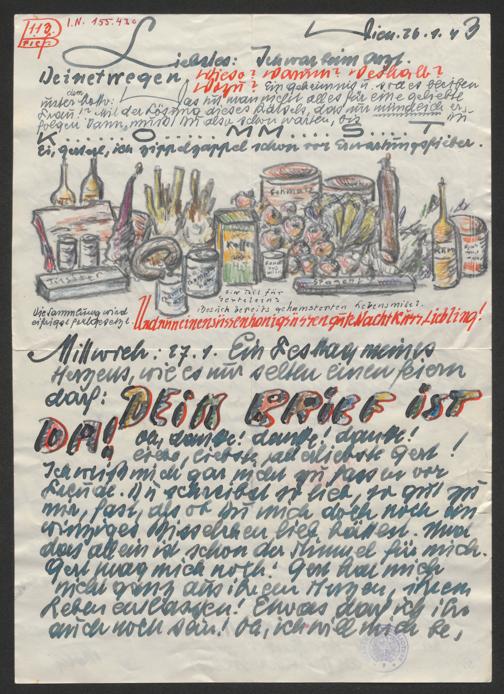 113.
I.N. 155.420
Wien. 26.1.43
Liebstes: Ich war beim Arzt.
Deinetwegen. Wieso? Warum? Weshalb?
Wozu? Ein Geheimnis. Und es bleiben
zum
unter Motto: Was tut man nicht alles für eine geliebte
Frau!? Mit der Lösung dieses Rätsels, das nur mündlich er,
folgen kann, musst Du also schon warten, bis Du
K...O...MM...S...T
Ei, gerne, ich zippelzappel schon vor Erwartungsfieber.
Schmalz
Kaffee
Spargel
RUM
Ein Teil für
Gerteleins
Besuch bereits gehamsterten Lebensmittel.
Die Sammlung wird
eifrigst fortgesetzt.
Und nun einen süssen honigsüssen gute Nacht Kuss, Liebling!
Mittwoch: 27.1. Ein Festtag meines
Herzens, wie es nur selten einen feiern
darf: DEIN BRIEF IST
DA! Oh, danke! danke! danke!
Liebe, liebste, allerliebste Gert!
Ich weiss mich gar nicht zu fassen vor
Freude. Du schreibst so lieb, so gut zu
mir, fast, als ob Du mich doch noch ein
winziges Bisschen lieb hättest. Und
das allein ist schon der Himmel für mich.
Gert mag mich noch! Gert hat mich
nicht ganz aus ihrem Herzen, ihrem
Leben entlassen! Etwas darf ich ihr
auch noch sein! Oh, ich will mich be,